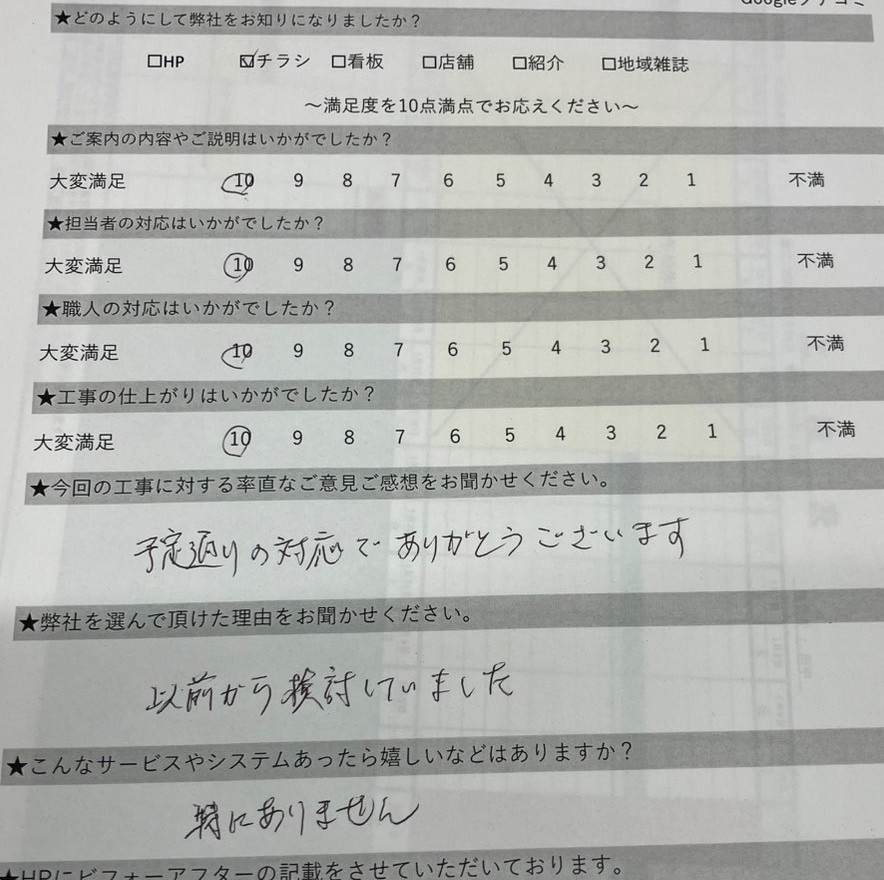 ★どのようにして弊社をお知りになりましたか？
☐HP ☑チラシ ☐看板 ☐店舗 ☐紹介 ☐地域雑誌
～満足度を10点満点でお応えください～
★ご案内の内容やご説明はいかがでしたか？
大変満足 10 9 8 7 6 5 4 3 2 1 不満
★担当者の対応はいかがでしたか？
大変満足 10 9 8 7 6 5 4 3 2 1 不満
★職人の対応はいかがでしたか？
大変満足 10 9 8 7 6 5 4 3 2 1 不満
★工事の仕上がりはいかがでしたか？
大変満足 10 9 8 7 6 5 4 3 2 1 不満
★今回の工事に対する率直なご意見ご感想をお聞かせください。
予定通りの対応でありがとうございます
★弊社を選んで頂けた理由をお聞かせください。
以前から検討していました
★こんなサービスやシステムあったら嬉しいなどはありますか？
特にありません
★HPにビフォーアフターの記載をさせていただいております。